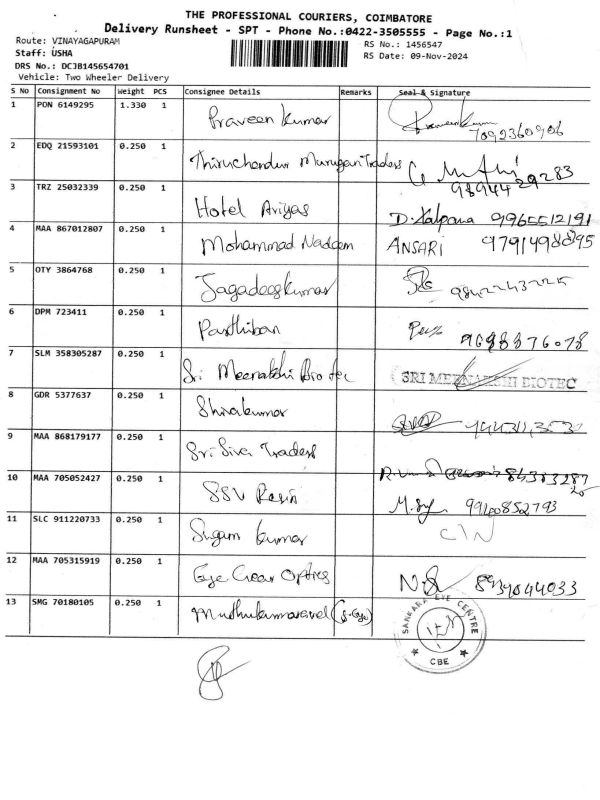 THE PROFESSIONAL COURIERS, COIMBATORE
Delivery Runsheet - SPT - Phone No.:0422-3505555 - Page No.:1
Route: VINAYAGAPURAM RS No.: 1456547
Staff: USHA RS Date: 09-Nov-2024
DRS No.: DCJB145654701
Vehicle: Two Wheeler Delivery
S No Consignment No Weight PCS Consignee Details Remarks Seal & Signature
1 PON 6149295 1.330 1 Praveen Kumar 7099360906
2 EDQ 21593101 0.250 1 Thiruchendur Murugan Traders 9894429283
3 TRZ 25032339 0.250 1 Hotel Ariyas D. Kalpana 9965512191
4 MAA 867012807 0.250 1 Mohammad Nadeem ANSARI
5 OTY 3864768 0.250 1 Jagadeeskumar 9842243225
6 DPM 723411 0.250 1 Parthiban
7 SLM 358305287 0.250 1 Sri Meenakshi Bio tec SRI MEENAKSHI BIOTEC
8 GDR 5377637 0.250 1 Shivakumar
9 MAA 868179177 0.250 1 Sri Siva Traders
10 MAA 705052427 0.250 1 SSV Resin 9940852793
11 SLC 911220733 0.250 1 Sugum Kumar
12 MAA 705315919 0.250 1 Eye Gear Optics
13 SMG 70180105 0.250 1 Muthukumaravel SANKARA EYE CENTRE CBE